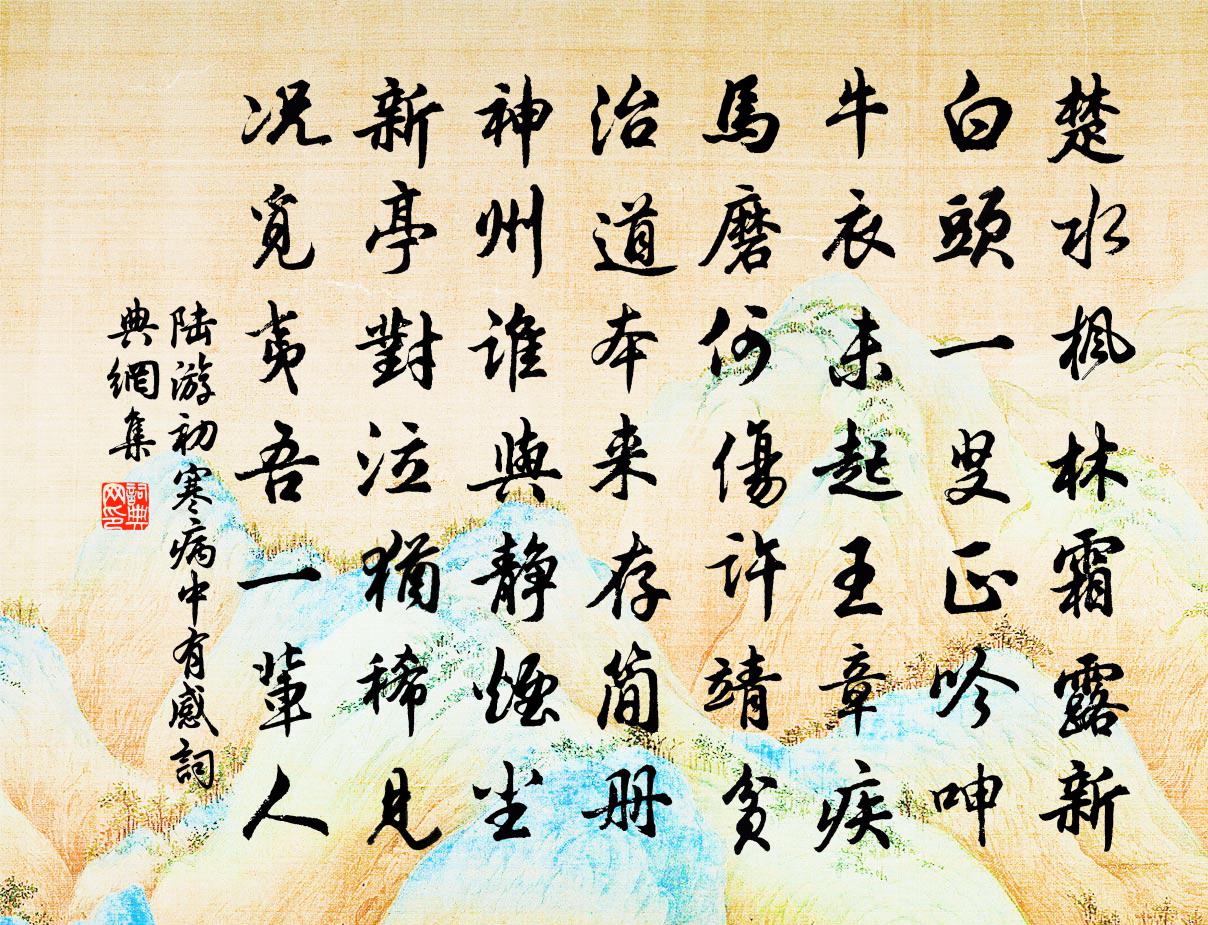 楚水楓林霜露新
白頭一叟正吟呻
牛衣未起王章疾
馬磨何傷許靖貧
治道本来存简册
神州谁與静煙尘
新亭對泣猶稀見
况覓夷吾一輩人
陆游初寒病中有感詞
典網集
詞典
网印